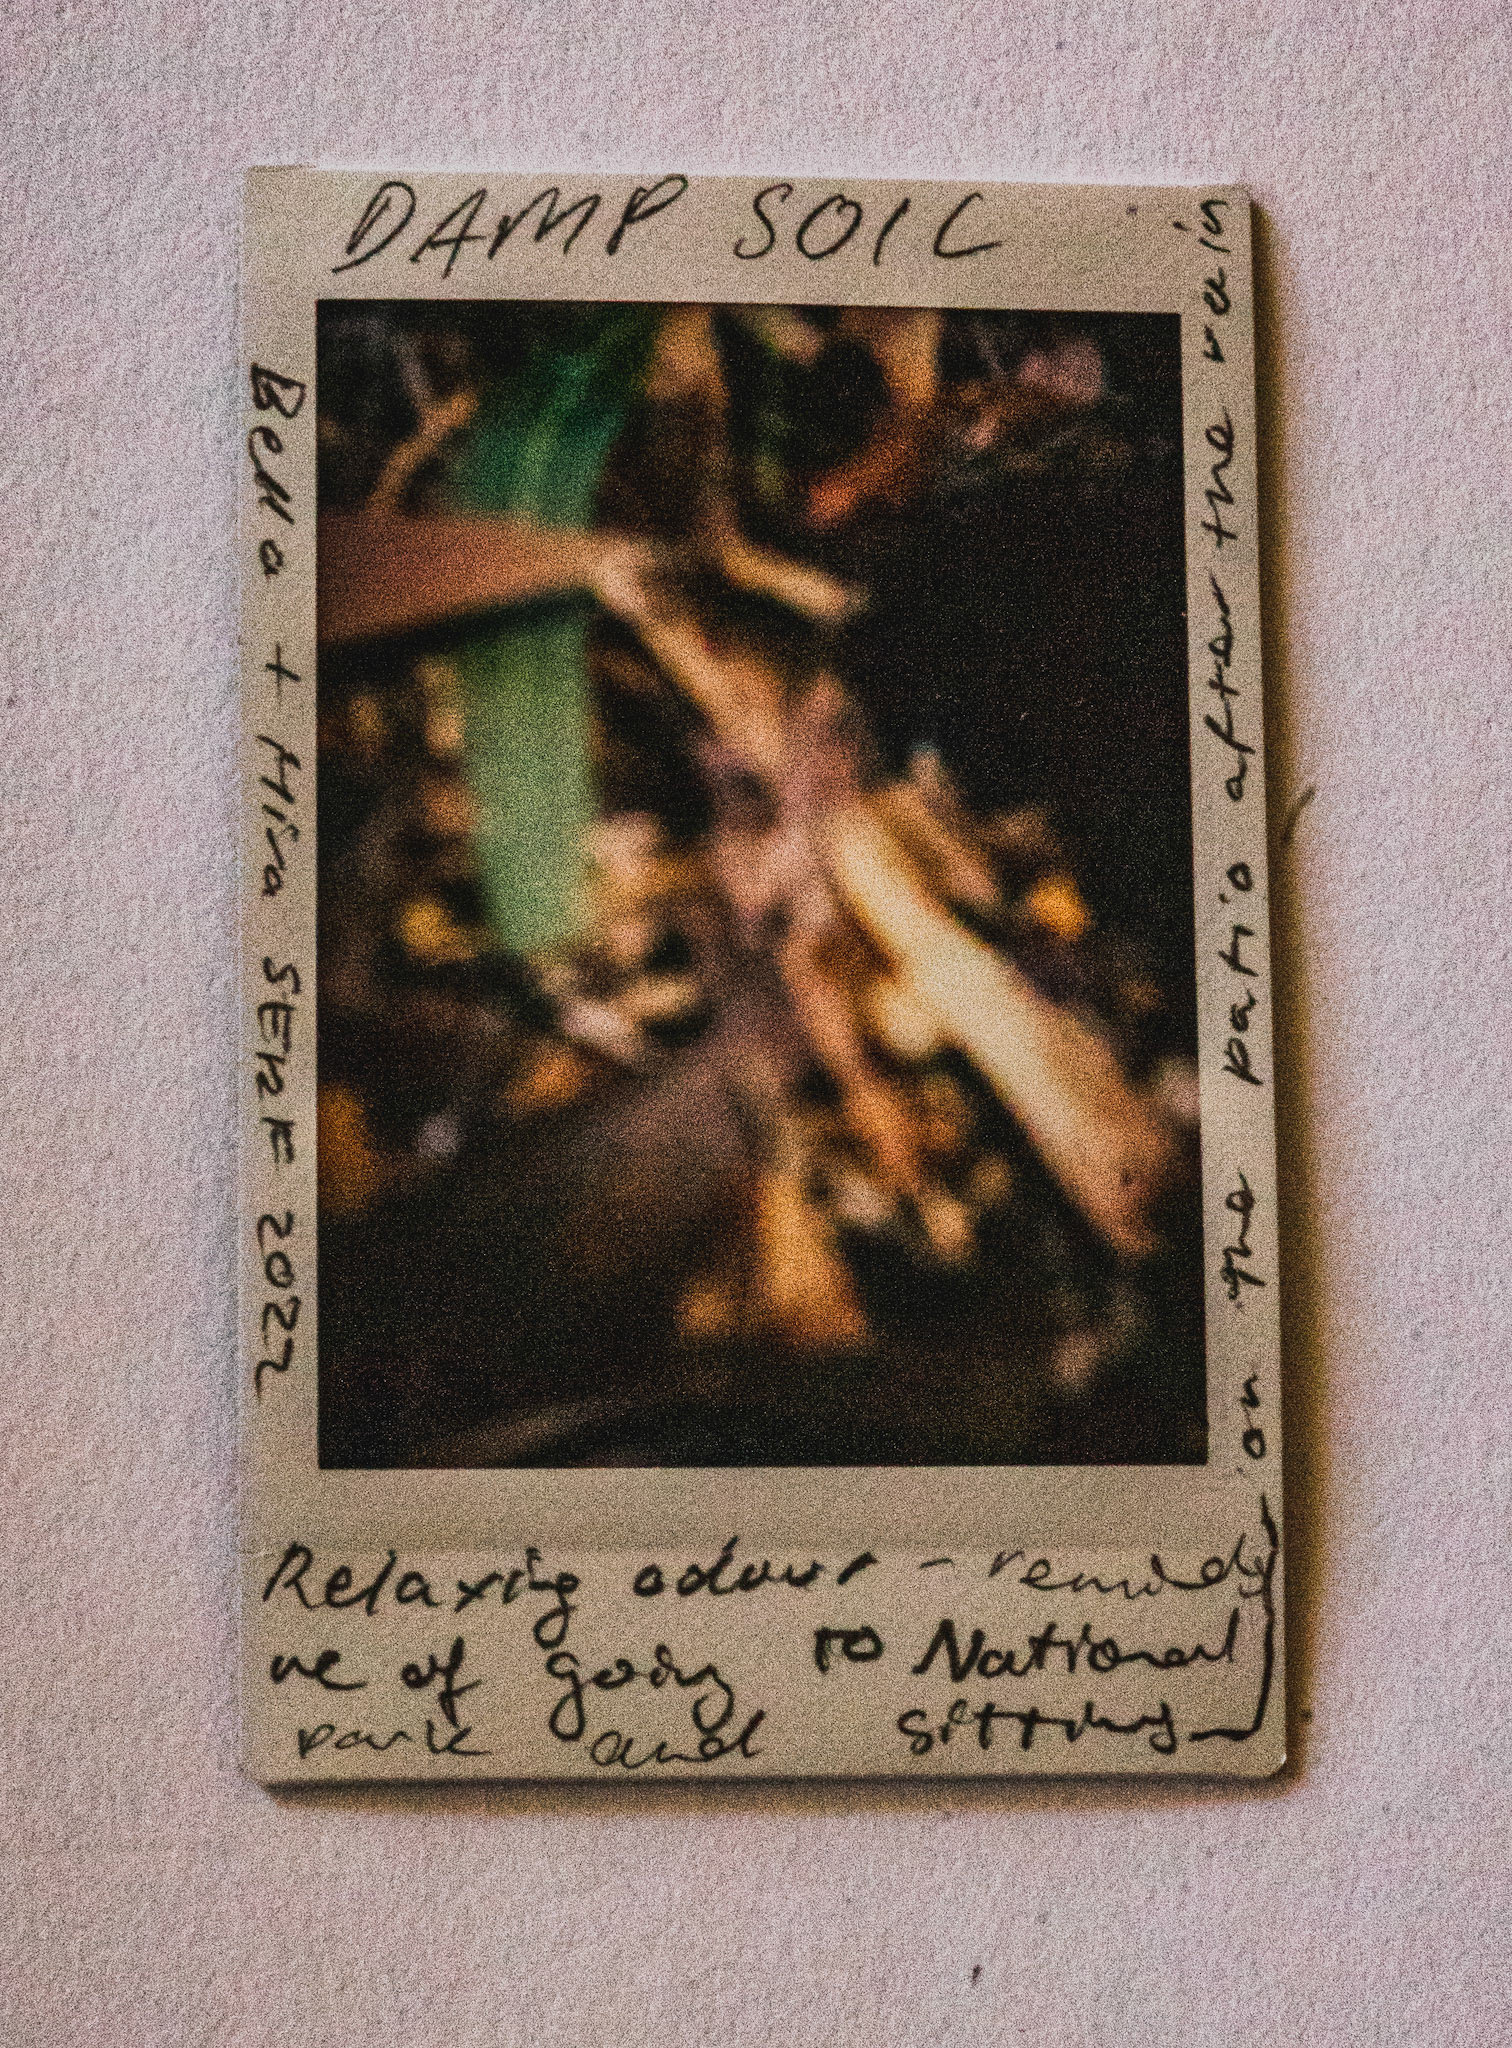 DAMP SOIL
Bella + Mira SENF 2022
Relaxing odour - reminds
me of going to National
park and sitting
on the patio after the rain